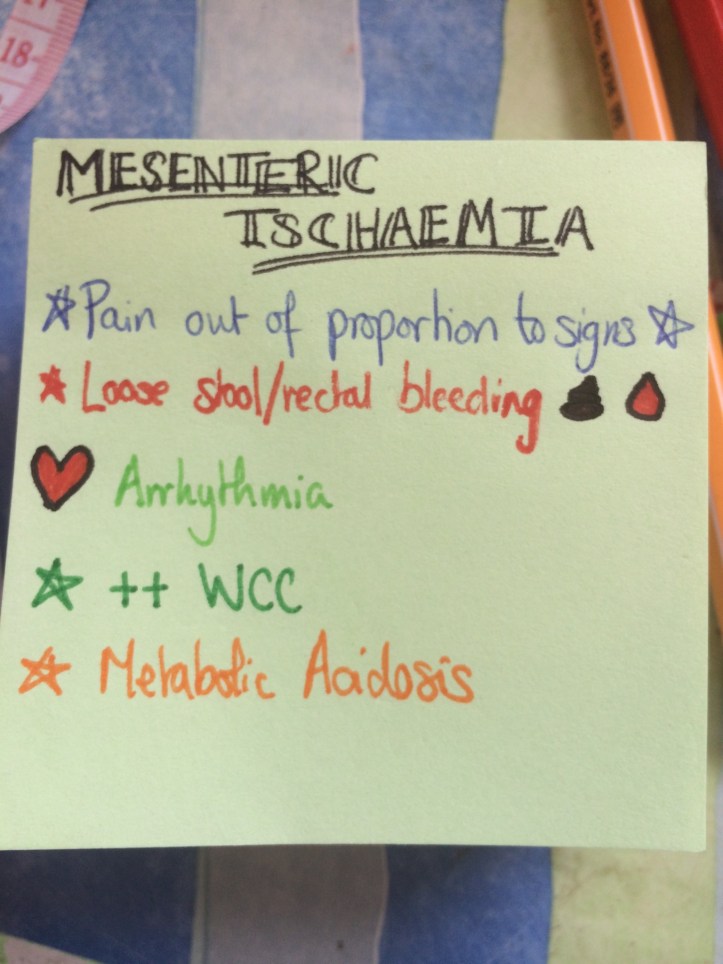 18
MESENTERIC
ISCHAEMIA
Pain out of proportion to signs
Loose stool/rectal bleeding
Arrhythmia
++ WCC
Metabolic Acidosis